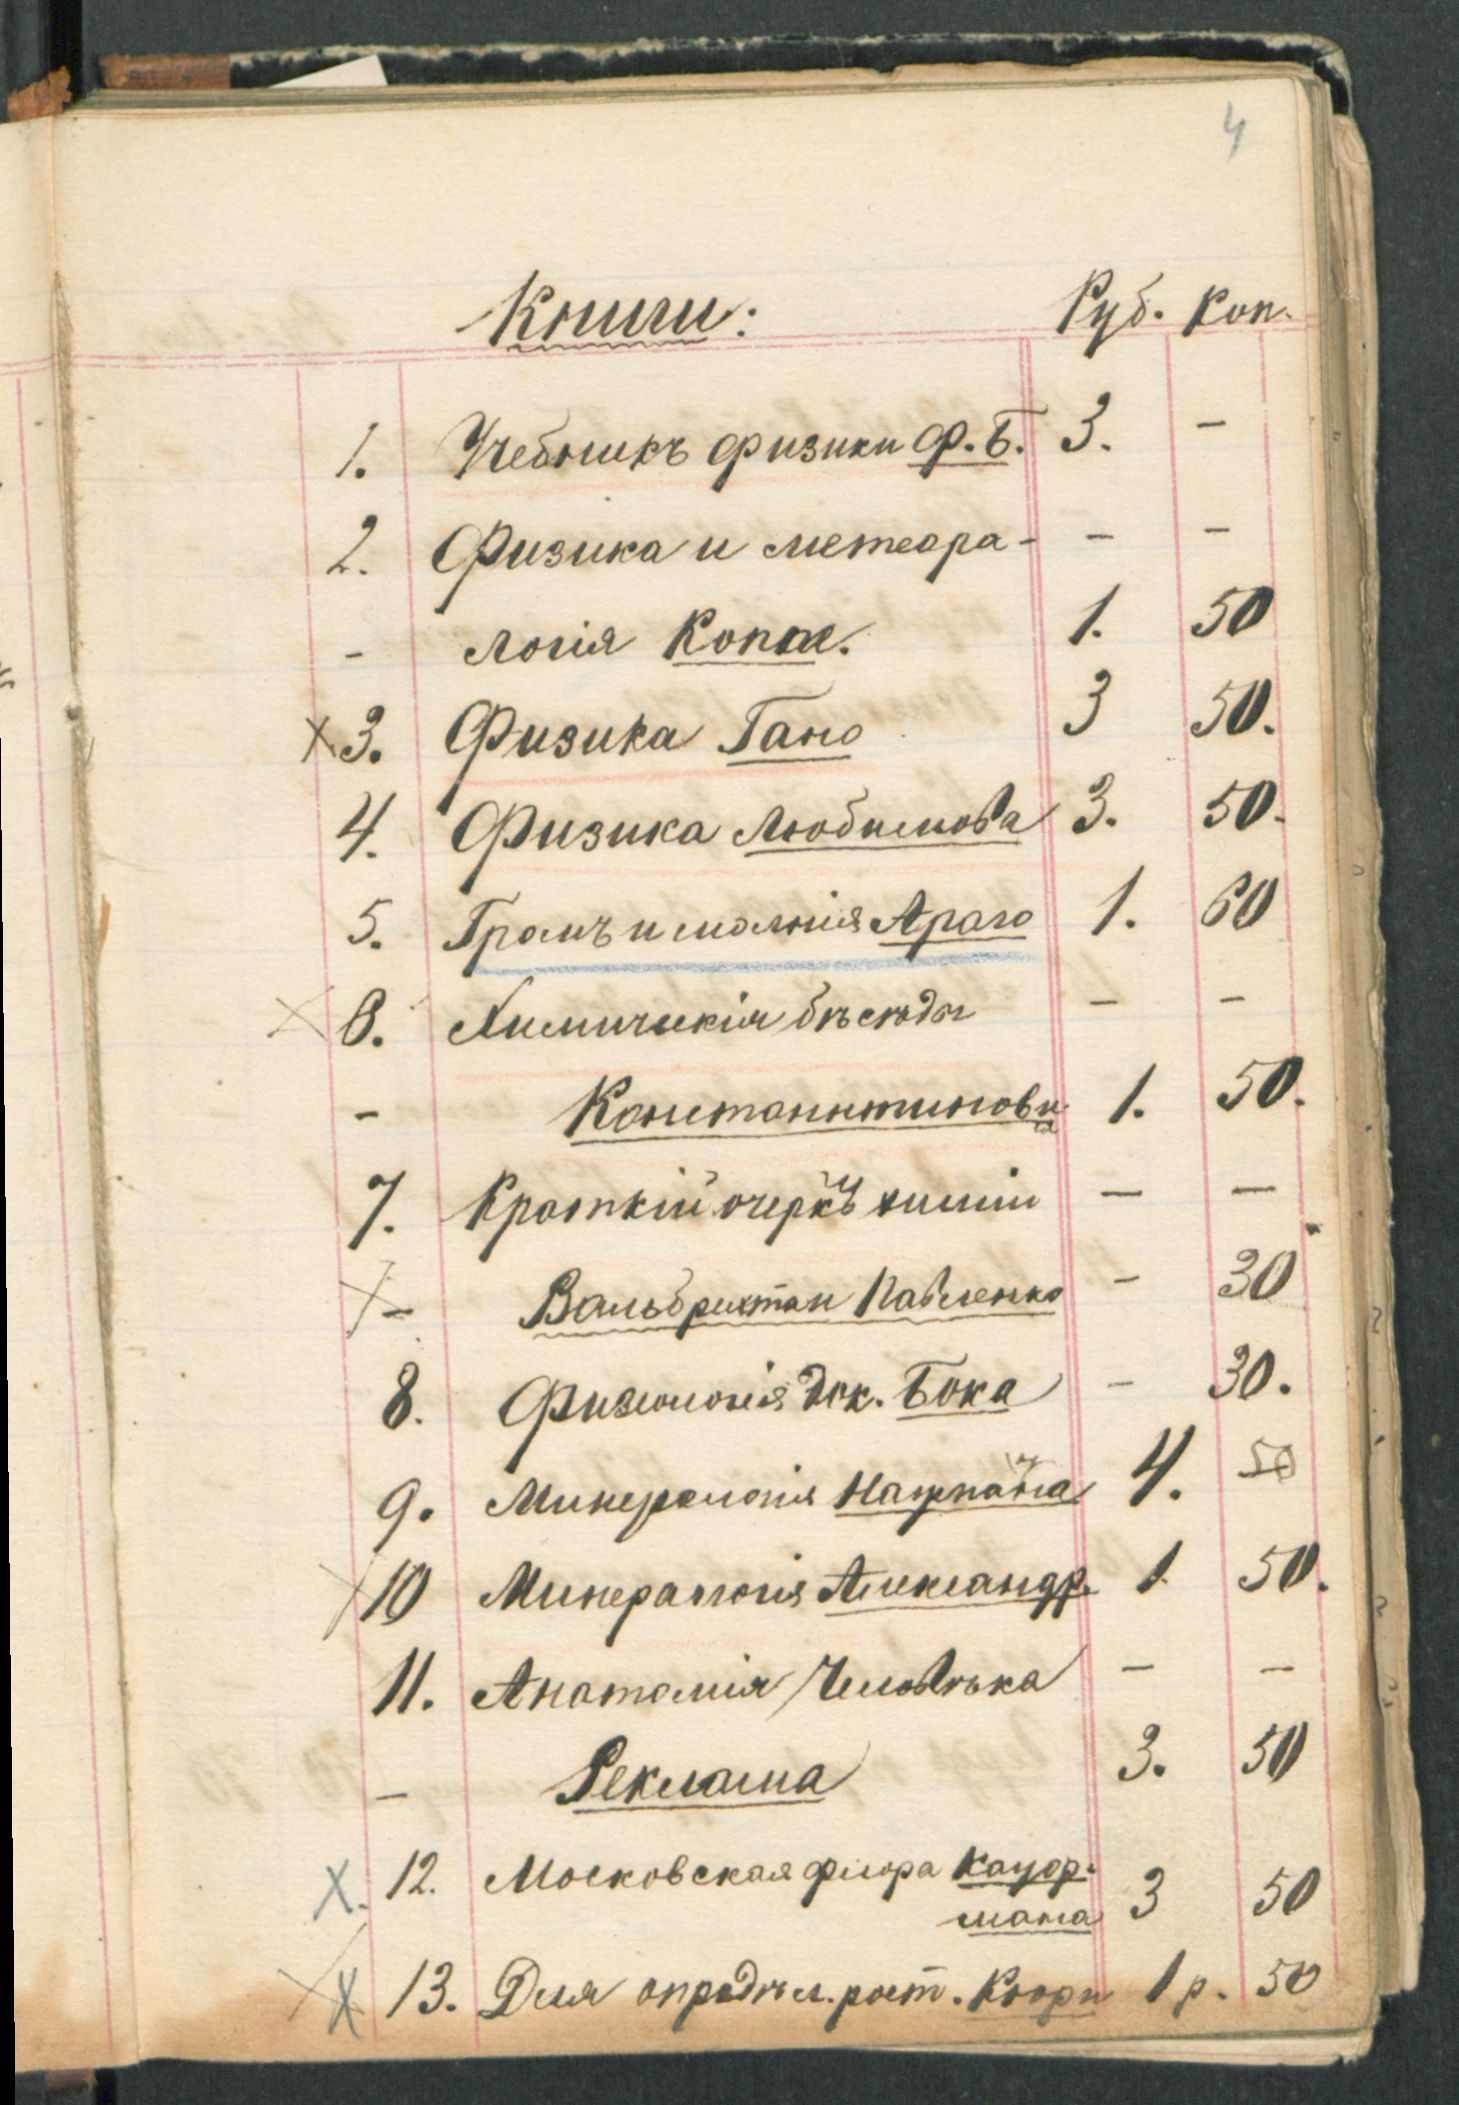 4
Книги: Руб. Коп.
1. Учебникъ физики Ф. Б. 3. -
2. Физика и метеора- - -
- логія Коппе. 1. 50
х 3. Физика Гано 3 50.
4. Физика Любимова 3. 50.
5. Громъ и молнія Араго 1. 60
х 6. Химическія бѣсѣды - -
- Константинови 1. 50.
7. Краткій очеркъ химіи - -
х - Вальбрихтан Павленко - 30
8. Физіологія док. Бока - 30.
9. Минералогія 4. 50
х 10 Минералогія Александр. 1. 50.
11. Анатомія Человѣка - -
- Реклама 3. 50
х. 12. Московская флора Кауф-
мана 3 50
х 13. Для опредѣл. раст. Кюри 1 р. 50